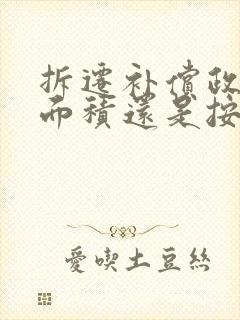 拆遷补償政
面積還是按
愛喫土豆絲